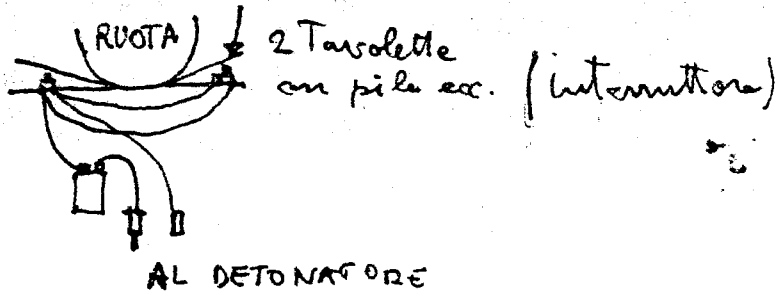 RUOTA
2 Tavolette
con pila ecc. (interruttore)
AL DETONATORE